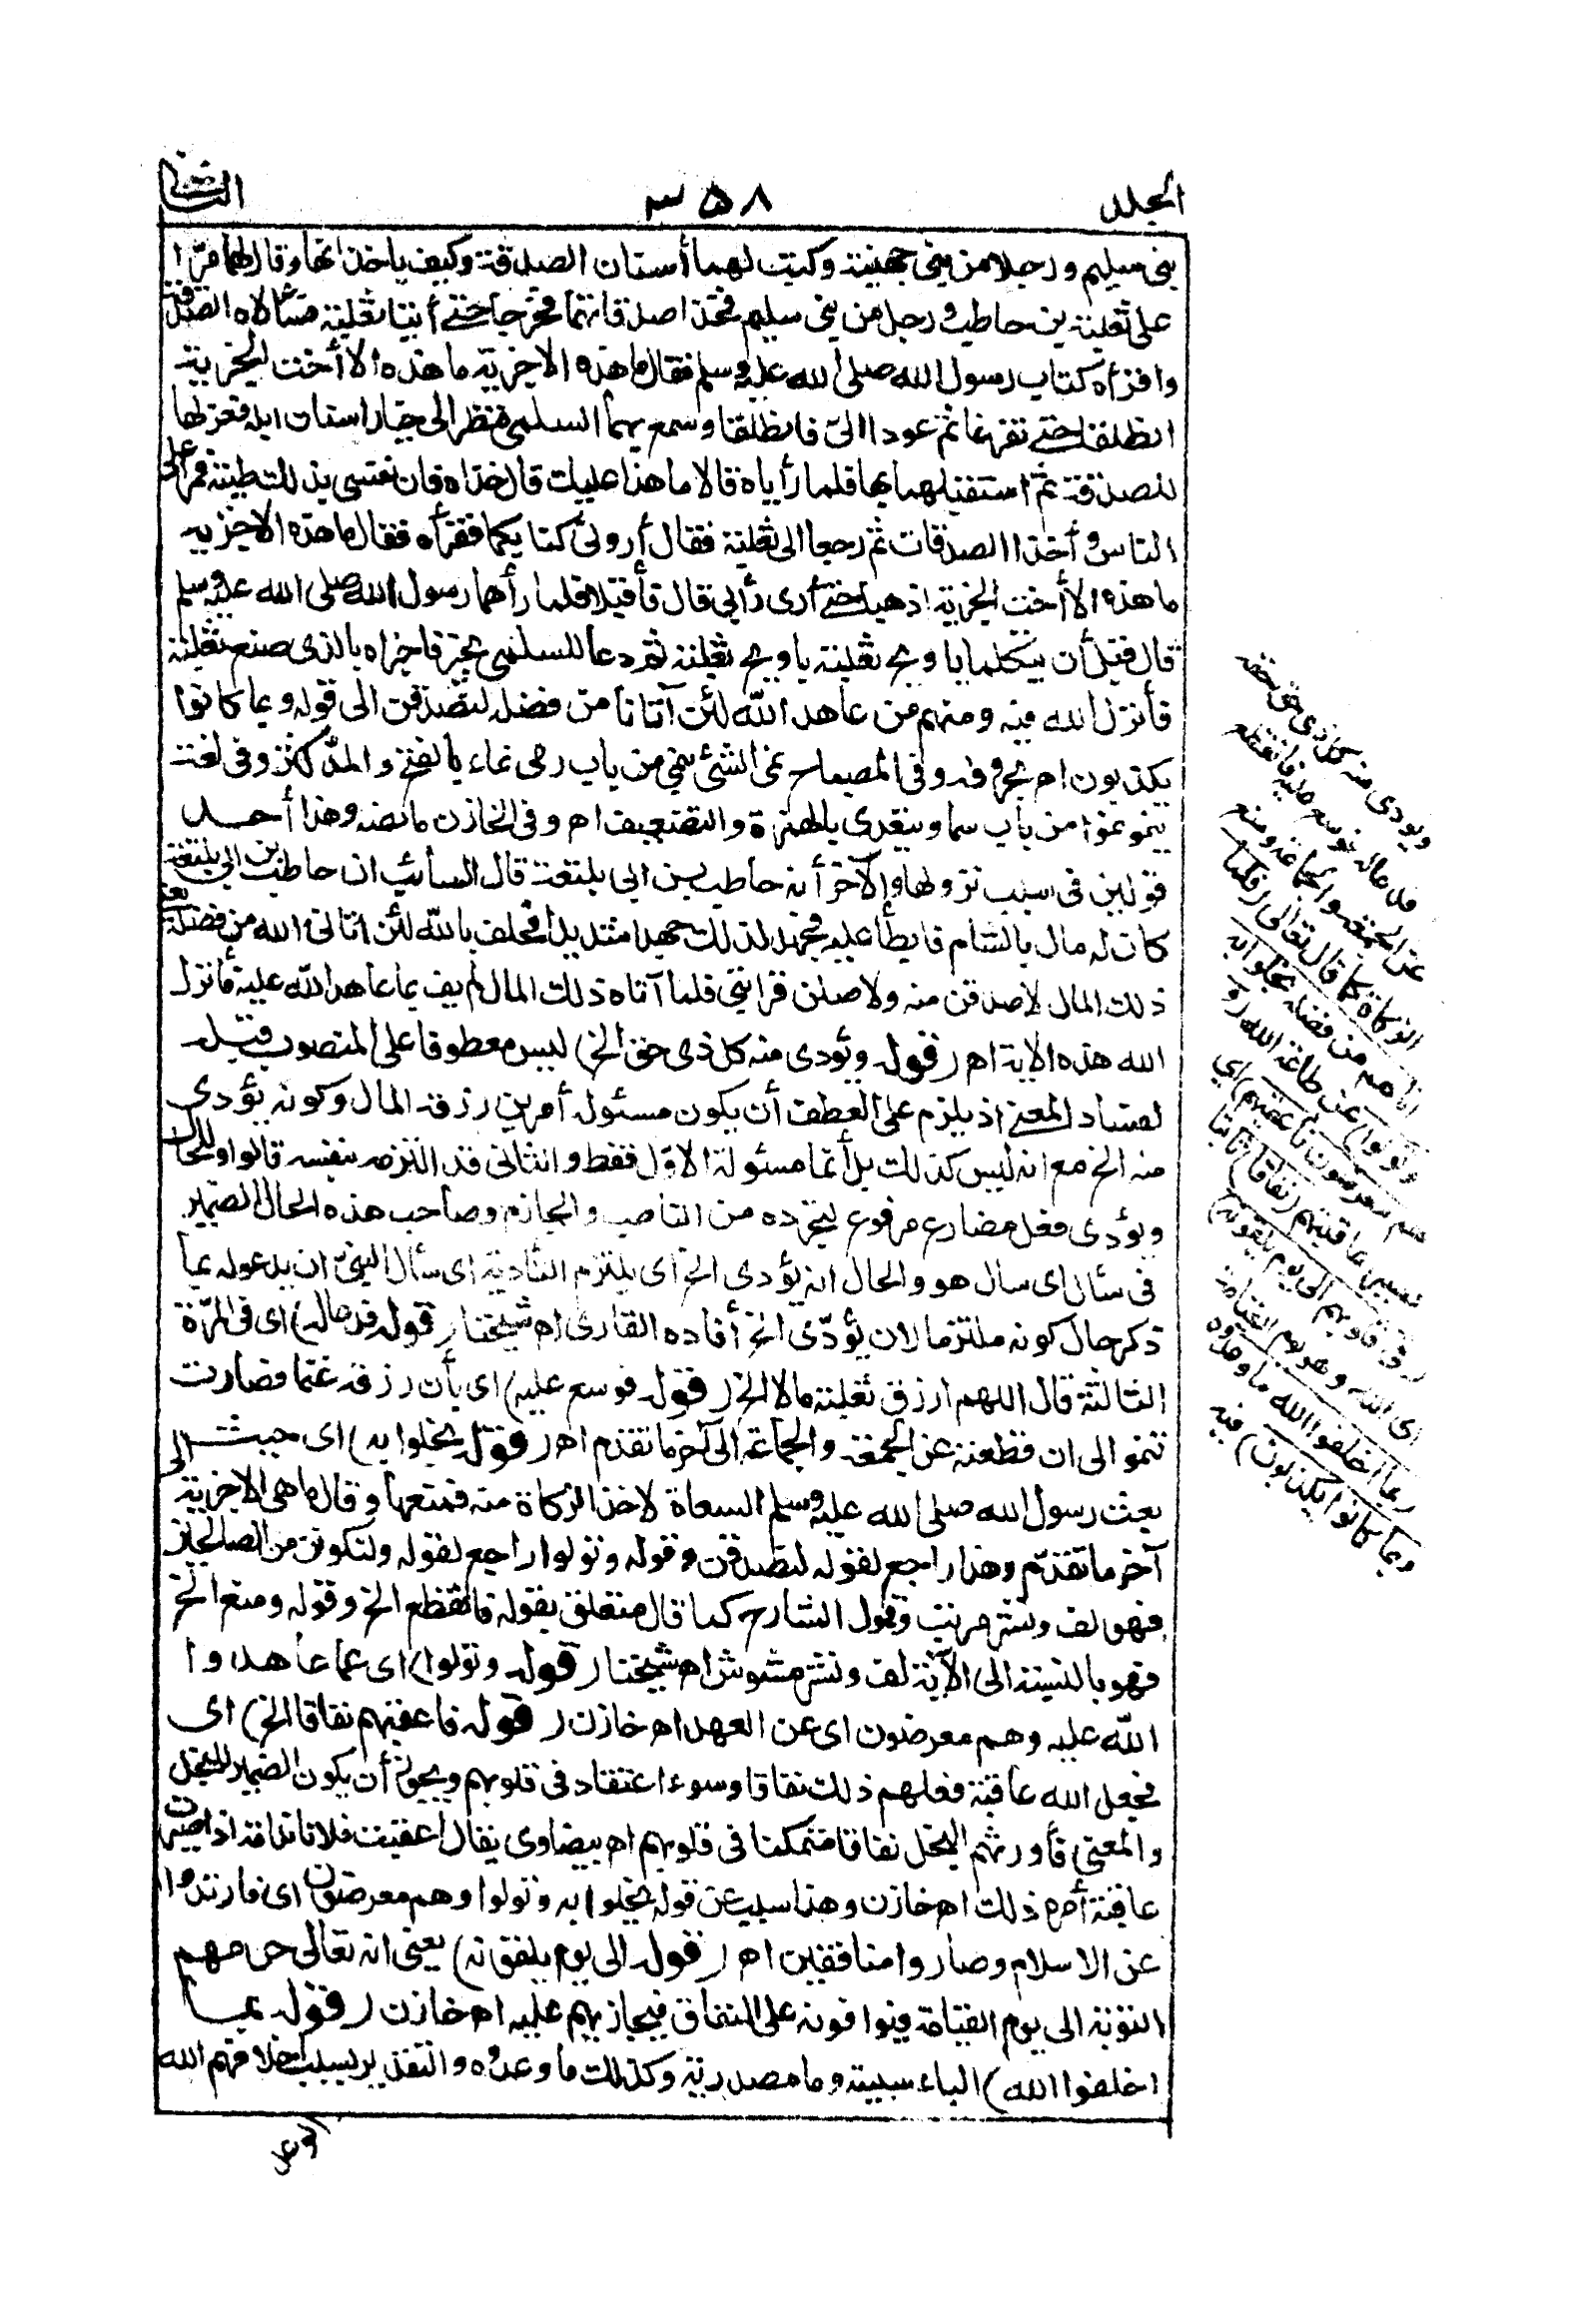 المجلد
٣٥٨
الثانى
بنى سليم ورجلا من بنى جهينة وكتب لهما أسنان الصدقة وكيف يأخذانها وقال لهما مرّا
على ثعلبة بن حاطب ورجل من بنى سليم فخذا صدقاتهما فخرجا حتى أتيا ثعلبة فسألاه الصدقة
واقرآه كتاب رسول الله صلى الله عليه وسلم فقال ما هذه الاجزية ما هذه الا أخت الجزية
انطلقا حتى تفرغا ثم عودا الىّ فانطلقا وسمع بهما السلمى فنظر الى خيار اسنان ابله فعزلها
للصدقة ثم استقبلهما بها فلما رأياه قالا ما هذا عليك قال خذاه فان نفسى بذلك طيبة فمرا على
الناس وأخذا الصدقات ثم رجعا الى ثعلبة فقال أرونى كتابكما فقرأه فقال ما هذه الاجزية
ما هذه الا أخت الجزية اذهبا حتى أرى رأيى قال فأقبلا فلما رأهما رسول الله صلى الله عليه وسلم
قال قبل أن يتكلما يا ويح ثعلبة يا ويح ثعلبة ثم دعا للسلمى بخير فاخبراه بالذى صنع ثعلبة
فأنزل الله فيه ومنهم من عاهد الله لئن آتانا من فضله لنصدقن الى قوله وبما كانوا
يكذبون اه بحروفه وفى المصباح نمى الشئ ينمى من باب رمى نماء بالفتح والمدّ كثر وفى لغة
ينمو نموا من باب سما ويتعدى بالهمزة والتضعيف اه وفى الخازن ما نصه وهذا أحد
قولين فى سبب نزولها والآخر أنه حاطب بن ابى بلتعة قال السائب ان حاطب بن ابى بلتعة
كان له مال بالشام فابطأ عليه فجهد لذلك جهدا شديدا فحلف بالله لئن اتانى الله من فضله يعنى
ذلك المال لاصدقن منه ولاصلن قرابتى فلما آتاه ذلك المال لم يف بما عاهد الله عليه فأنزل
الله هذه الاية اه (قوله ويؤدى منه كل ذى حق الخ) ليس معطوفا على المنصوب قبله
لفساد المعنى اذ يلزم على العطف أن يكون مسئوله أمرين رزقه المال وكونه يؤدى
منه الخ مع انه ليس كذلك بل أنما مسئولة الاوّل فقط والثانى قد التزمه بنفسه قالوا وللحال
ويؤدى فعل مضارع مرفوع لتجرده من الناصب والجازم وصاحب هذه الحال الضمير
فى سأل اى سال هو والحال انه يؤدى الخ اى يلتزم التأدية اى سأل النبىّ ان يدعوله بما
ذكر حال كونه ملتزما لان يؤدّى الخ أفاده القارى اه شيخنا (قوله فدعاله) اى فى المرّة
الثالثة قال اللهم ارزق ثعلبة مالا الخ (قوله فوسع عليه) اى بأن رزقه غنما فصارت
تنمو الى ان قطعته عن الجمعة والجماعة الى آخر ما تقدم اه (قوله بخلوا به) اى حيث الى
بعث رسول الله صلى الله عليه وسلم السعاة لاخذ الزكاة منه فمنعها وقال ما هى الاجزية
آخر ما تقدّم وهذا راجع لقوله لنصدقن وقوله وتولوا راجع لقوله ولنكونن من الصالحين
فهو لف ونشر مرتب وقول الشارح كما قال متعلق بقوله فانقطع الخ وقوله ومنع الخ
فهو بالنسبة الى الآية لف ونشر مشوش اه شيخنا (قوله وتولوا) اى عما عاهدوا
الله عليه وهم معرضون اى عن العهد اه خازن (قوله فاعقبهم نفاقا الخ) اى
فجعل الله عاقبة فعلهم ذلك نفاقا وسوء اعتقاد فى قلوبهم ويجوز أن يكون الضمير للبخل
والمعنى فأورثهم البخل نفاقا متمكنا فى قلوبهم اه بيضاوى يقال اعقبت فلانا ندامة اذا صيرت
عاقبة أمره ذلك اه خازن وهذا سبب عن قوله بخلوا به وتولوا وهم معرضون اى فارتدوا
عن الاسلام وصاروا منافقين اه (قوله الى يوم يلقونه) يعنى انه تعالى حرمهم
التوبة الى يوم القيامة فيوافونه على النفاق فيجازيهم عليه اه خازن (قوله بما
اخلفوا الله) الباء سببية وما مصدرية وكذلك ما وعدوه والتقدير بسبب اخلافهم الله
ويؤدى منه كل ذى حق حقه
فدعاله فوسع عليه فانقطع
عن الجمعة والجماعة ومنع
الزكاة كما قال تعالى (فلما
آتاهم من فضله بخلوا به
وتولوا) عن طاعة الله (و
هم معرضون فأعقبهم) اى
فصير عاقبتهم (نفاقا) ثابتا
(فى قلوبهم الى يوم يلقونه)
اى الله وهو يوم القيامة
(بما أخلفوا الله ما وعدوه
وبما كانوا يكذبون) فيه